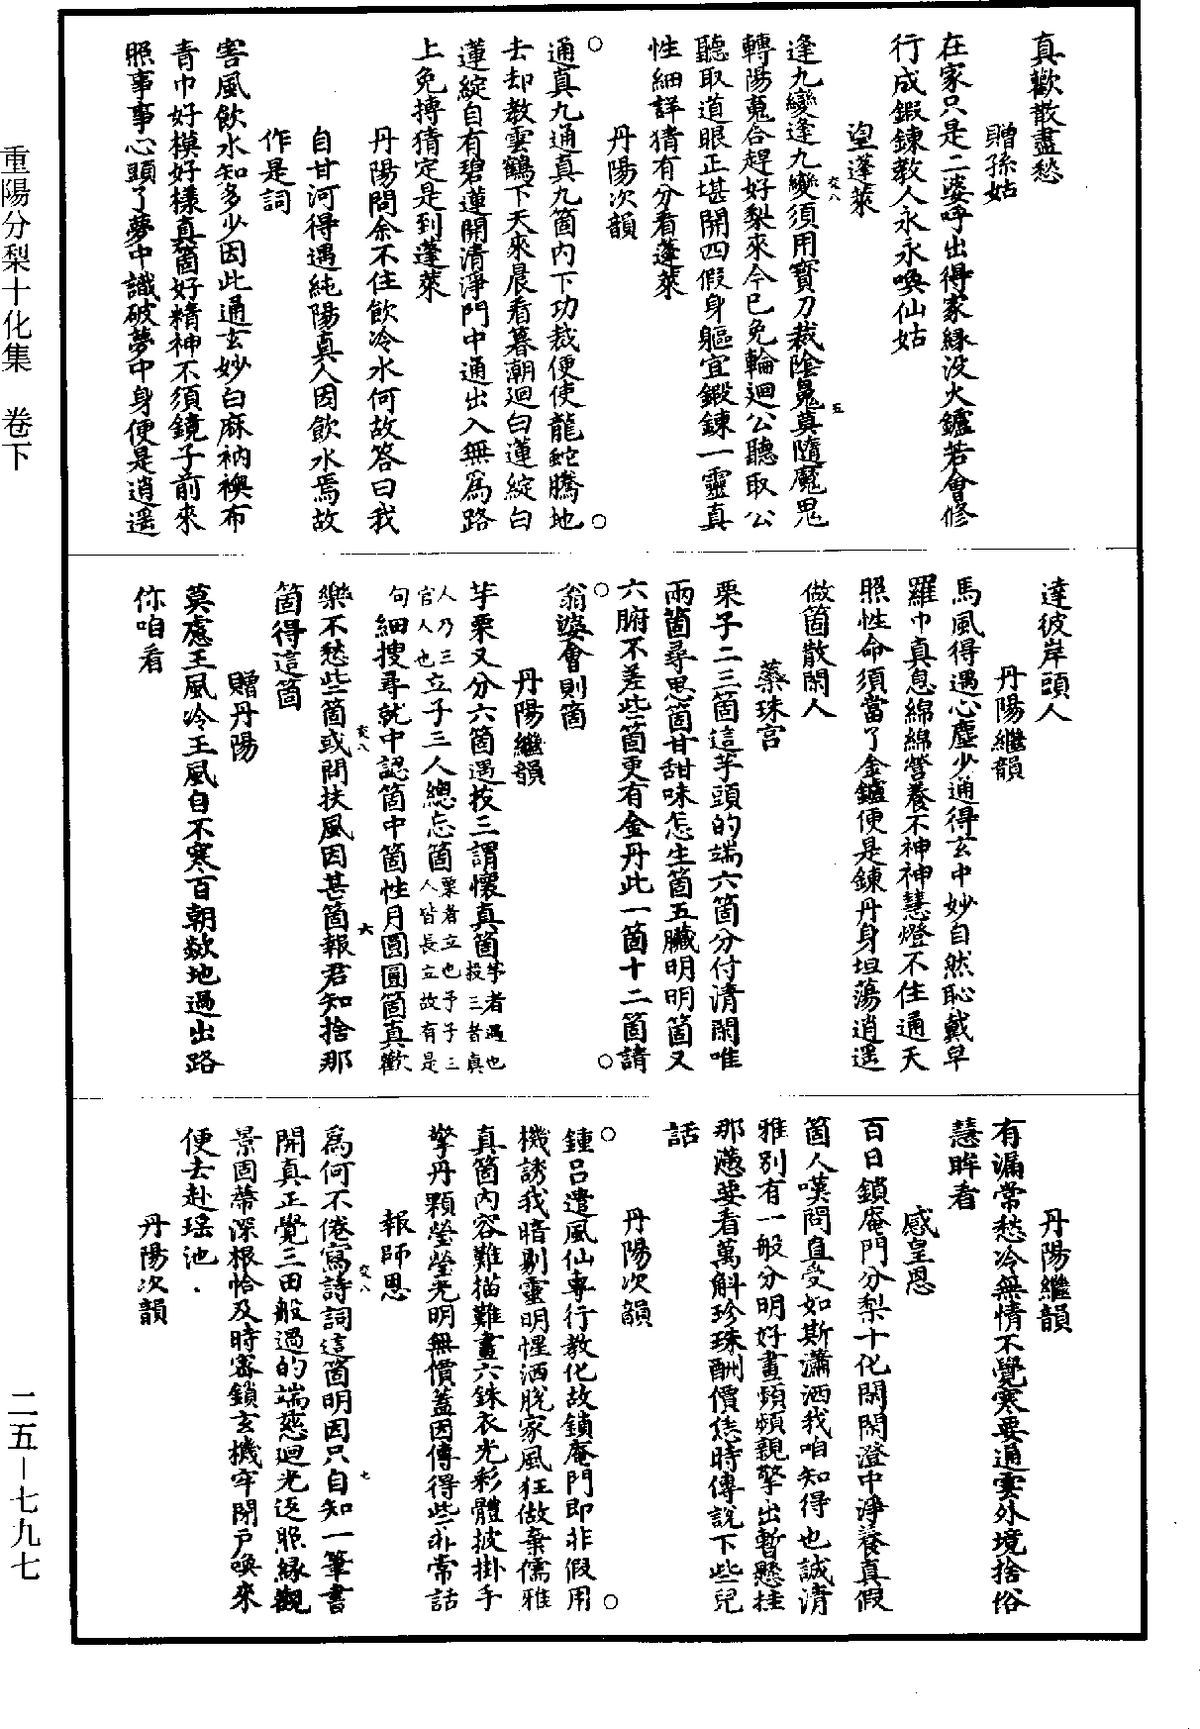 真歡散盡愁
贈孫姑
在家只是二婆呼出得家緣没火鑪若會修
行成鍛鍊教人永永喚仙姑
望蓬萊
逢九變逢九變須用寳刀裁陰鬼莫隨魔鬼
轉陽䰟合趕好梨來今已免輪迴公聽取公
聽取道眼正堪開四假身軀宜鍛鍊一靈真
性細詳猜有分看蓬萊
丹陽次韻
通真九通真九箇內下功裁便使龍蛇騰地
去却教雲鶴下天來晨看暮潮迴白蓮綻白
蓮綻自有碧蓮開清淨門中通出入無爲路
上免摶猜定是到蓬萊
丹陽問余不住飲冷水何故答曰我
自甘河得遇純陽真人因飲水焉故
作是詞
害風飲水知多少因此通玄妙白麻衲襖布
青巾好模好樣真箇好精神不須鏡子前來
照事事心頭了夢中識破夢中身便是逍遥
達彼岸頭人
丹陽繼韻
馬風得遇心塵少通得玄中妙自然恥戴皁
羅巾真息綿綿營養不神神慧燈不住通天
照性命須當了金鑪便是鍊丹身坦蕩逍遥
做箇散閑人
蘂珠宫
栗子二三箇這芋頭的端六箇分付清閑唯
兩箇尋思箇甘甜味怎生箇五臟明明箇又
六腑不差些箇更有金丹此一箇十二箇請
翁婆會則箇
丹陽繼韻
芋栗又分六箇遇投三謂懷真箇芋者遇也投三者真
人乃三官人也立子三人總忘箇栗者立也子子三人皆長立故有是
句細搜尋就中認箇中箇性月圓圓箇真歡
樂不愁些箇或問扶風因甚箇報君知捨那
箇得這箇
贈丹陽
莫慮王風冷王風自不寒百朝㰸地過出路
你咱看
丹陽繼韻
有漏常愁冷無情不覺寒要通雲外境捨俗
慧眸看
感皇恩
百日鎖庵門分梨十化閑閑澄中淨養真假
箇人嘆問直受如斯瀟洒我咱知得也誠清
雅别有一般分明好畫頻頻親擎出暫懸挂
那懣要看萬斛珍珠酬價恁時傳説下些兒
話
丹陽次韻
鍾吕遣風仙專行教化故鎖庵門即非假用
機誘我暗剔靈明惺洒脱家風狂做棄儒雅
真箇內容難描難畫六銖衣光彩體披掛手
擎丹顆瑩瑩光明無價蓋因傳得些非常話
報師恩
爲何不倦寫詩詞這箇明因只自知一筆書
開真正覺三田般過的端慈迴光返照緣觀
景固蔕深根恰及時密鎖玄機牢閉户喚來
便去赴瑶池
丹陽次韻
重陽分梨十化集　卷下
二五—七九七